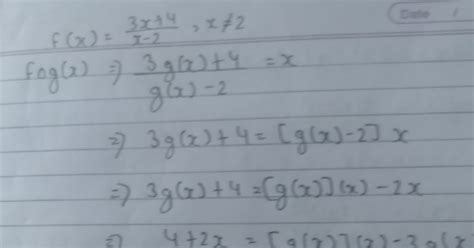 Date
f(x) = (3x+4)/(x-2) , x≠2
fog(x) ⇒ (3g(x)+4)/(g(x)-2) = x
⇒ 3g(x)+4 = [g(x)-2] x
⇒ 3g(x)+4 = [g(x)](x) - 2x
⇒ 4+2x = [g(x)](x) - 3g(x